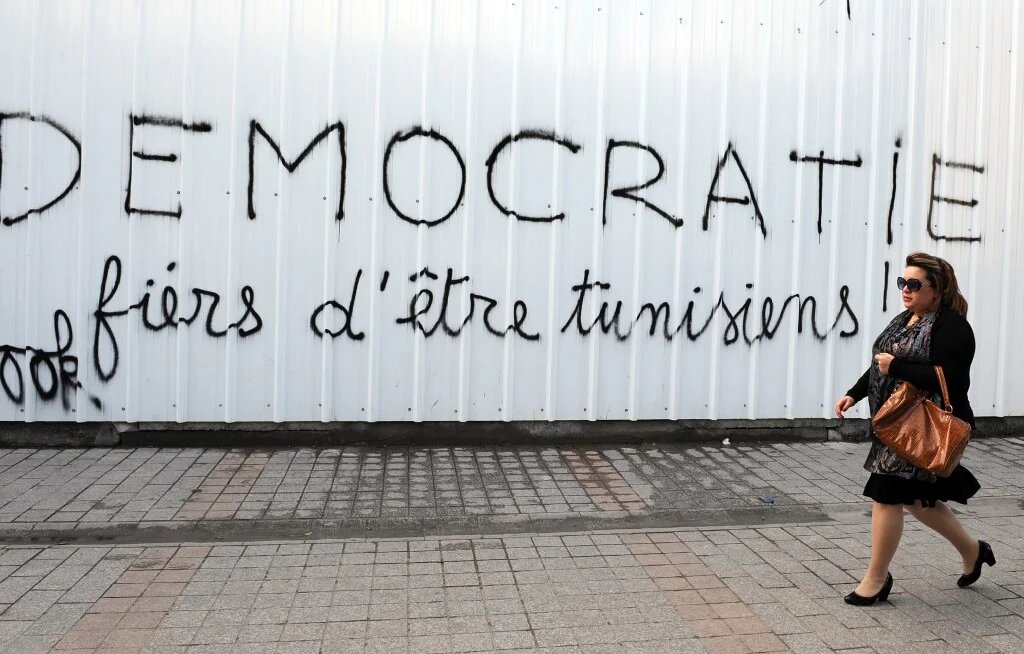 DEMOCRATiE
fiérs d'être tunisiens !
ook